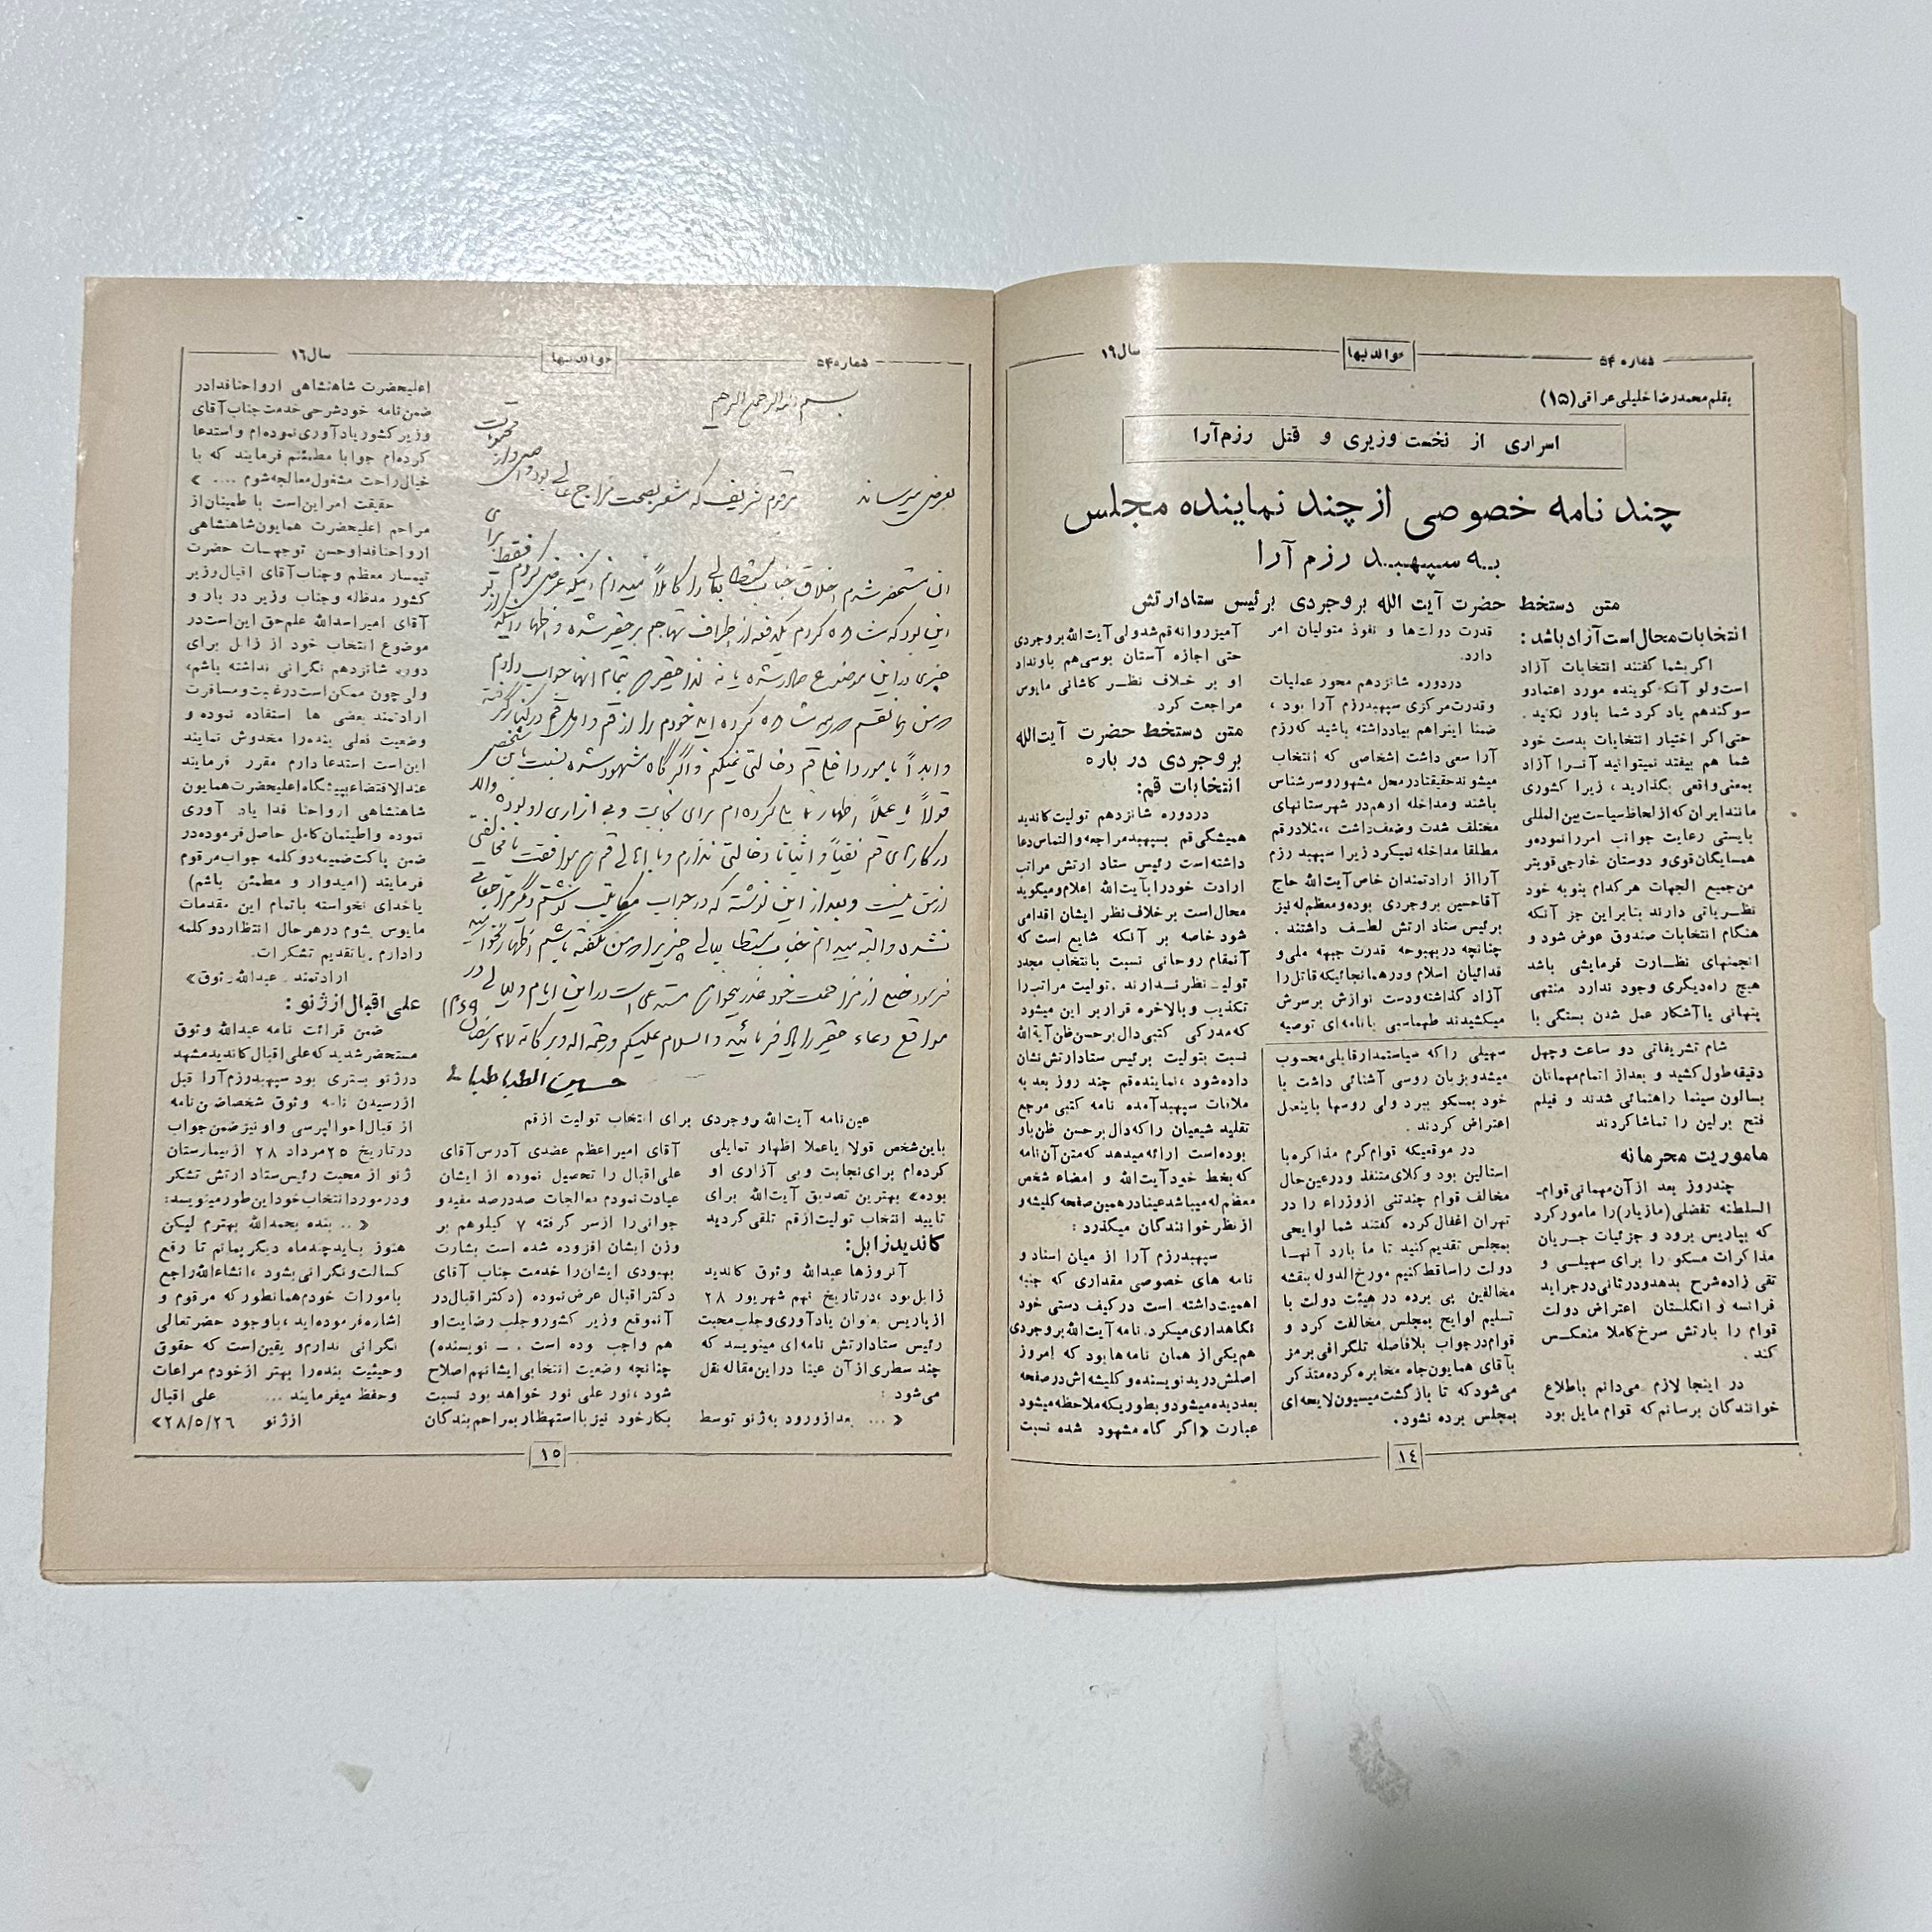 شماره ۵۴
خواندنیها
سال ۱۹
بقلم محمدرضا خلیلی عراقی (۱۵)
اسراری از نخست وزیری و قتل رزم‌آرا
چند نامه خصوصی از چند نماینده مجلس
به سپهبد رزم آرا
متن دستخط حضرت آیت الله بروجردی برئیس ستاد ارتش
انتخابات محال است آزاد باشد :
اگر بشما گفتند انتخابات آزاد
است ولو آنکه گوینده مورد اعتماد و
سوگند هم یاد کرد شما باور نکنید .
حتی اگر اختیار انتخابات بدست خود
شما هم بیفتد نمیتوانید آنرا آزاد
بمعنی واقعی بگذارید ، زیرا کشوری
مانند ایران که از لحاظ سیاست بین المللی
بایستی رعایت جوانب امر را نموده و
همسایگان قوی و دوستان خارجی قویتر
من جمیع الجهات هر کدام بنوبه خود
نظریاتی دارند بنابر این جز آنکه
هنگام انتخابات صندوق عوض شود و
انجمنهای نظارت فرمایشی باشد
هیچ راه دیگری وجود ندارد منتهی
پنهانی یا آشکار عمل شدن بستگی با
قدرت دولت‌ها و نفوذ متولیان امر
دارد.
در دوره شانزدهم محور عملیات
و قدرت مرکزی سپهبد رزم آرا بود ،
ضمنا اینرا هم بیاد داشته باشید که رزم
آرا سعی داشت اشخاصی که انتخاب
میشوند حقیقتا در محل مشهور و سرشناس
باشند و مداخله او هم در شهرستانهای
مختلف شدت و ضعف داشت ، مثلا در قم
مطلقا مداخله نمیکرد زیرا سپهبد رزم
آرا از ارادتمندان خاص آیت الله حاج
آقا حسین بروجردی بوده و معظم له نیز
برئیس ستاد ارتش لطف داشتند .
چنانچه در بهبوحه قدرت جبهه ملی و
فدائیان اسلام و در همانجائیکه قاتل را
آزاد گذاشته و دست نوازش بر سرش
میکشیدند طهماسبی با نامه‌ای توصیه
آمیز روانه قم شد ولی آیت الله بروجردی
حتی اجازه آستان بوسی هم باو نداد
او بر خلاف نظر کاشانی مایوس
مراجعت کرد.
متن دستخط حضرت آیت‌الله
بروجردی در باره
انتخابات قم:
در دوره شانزدهم تولیت کاندید
همیشگی قم بسپهبد مراجعه و التماس دعا
داشته است رئیس ستاد ارتش مراتب
ارادت خود را بآیت الله اعلام و میگوید
محال است بر خلاف نظر ایشان اقدامی
شود خاصه بر آنکه شایع است که
آنمقام روحانی نسبت بانتخاب مجدد
تولیت نظر ندارند . تولیت مراتب را
تکذیب و بالاخره قرار بر این میشود
که مدرکی کتبی دال بر حسن ظن آیة الله
نسبت بتولیت برئیس ستاد ارتش نشان
داده شود ، نماینده قم چند روز بعد به
ملاقات سپهبد آمده نامه کتبی مرجع
تقلید شیعیان را که دال بر حسن ظن باو
بوده است ارائه میدهد که متن آن نامه
که بخط خود آیت الله و امضاء شخص
معظم له میباشد عینا در همین صفحه کلیشه و
از نظر خوانندگان میگذرد :
سپهبد رزم آرا از میان اسناد و
نامه های خصوصی مقداری که جنبه
اهمیت داشته است در کیف دستی خود
نگاهداری میکرد. نامه آیت الله بروجردی
هم یکی از همان نامه‌ها بود که امروز
اصلش در ید نویسنده و کلیشه اش در صفحه
بعد دیده میشود و بطوریکه ملاحظه میشود
عبارت «اگر گاه مشهود شده نسبت
شام تشریفاتی دو ساعت و چهل
دقیقه طول کشید و بعد از اتمام مهمانان
بسالون سینما راهنمائی شدند و فیلم
فتح برلین را تماشا کردند
ماموریت محرمانه
چند روز بعد از آن مهمانی قوام-
السلطنه تفضلی (مازیار) را مامور کرد
که بپاریس برود و جزئیات جریان
مذاکرات مسکو را برای سهیلی و
تقی زاده شرح بدهد و در ثانی در جراید
فرانسه و انگلستان اعتراض دولت
قوام را بارتش سرخ کاملا منعکس
کند .
در اینجا لازم می‌دانم باطلاع
خوانندگان برسانم که قوام مایل بود
سهیلی را که سیاستمدار قابلی محسوب
میشد و بزبان روسی آشنائی داشت با
خود بمسکو ببرد ولی روسها باینعمل
اعتراض کردند .
در موقعیکه قوام گرم مذاکره با
استالین بود وکلای متنفذ و در عین حال
مخالف قوام چندتنی از وزراء را در
تهران اغفال کرده گفتند شما لوایحی
بمجلس تقدیم کنید تا ما با رد آنها
دولت را ساقط کنیم مورخ الدوله بنقشه
مخالفین پی برده در هیئت دولت با
تسلیم لوایح بمجلس مخالفت کرد و
قوام در جواب بلافاصله تلگرافی برمز
بآقای همایون جاه مخابره کرده متذکر
می‌شود که تا بازگشت میسیون لایحه‌ای
بمجلس برده نشود .
۱٤
شماره ۵۴
خواندنیها
سال ۱۶
بسم الله الرحمن الرحیم
بعرض میرساند
مرقوم شریف که مشعر بصحت مزاج عالی بود واصل و از
این بود که مشاهده کردم یکدفعه از اطراف تهاجم بر حقیر شده و اظهار
چیزی در این موضوع صادر شده یا نه لذا حقیر هم بتمام آنها جواب دادم
و ابداً بامور داخلی قم دخالتی نمیکنم و اگر گاه مشهود شده نسبت باین شخص
قولاً یا عملاً اظهار تمایلی کرده‌ام برای نجابت و بی آزاری او بوده والا
در کارهای قم نفیاً و اثباتاً دخالتی ندارم و با اهالی قم هم موافقت یا مخالفتی
مواقع دعاء حقیر را یاد فرمائید والسلام علیکم ورحمة الله وبرکاته ۲۷ رمضان
حسین الطباطبائی
عین نامه آیت‌الله بروجردی برای انتخاب تولیت از قم
باین شخص قولا یا عملا اظهار تمایلی
کرده‌ام برای نجابت و بی آزاری او
بوده» بهترین تصدیق آیت‌الله برای
تایید انتخاب تولیت از قم تلقی گردید
کاندید زابل:
آنروزها عبدالله وثوق کاندید
زابل بود ، در تاریخ نهم شهریور ۲۸
از پاریس بعنوان یادآوری و جلب محبت
رئیس ستاد ارتش نامه‌ای مینویسد که
چند سطری از آن عینا در این مقاله نقل
می‌شود :
« ... بعد از ورود به ژنو توسط
آقای امیر اعظم عضدی آدرس آقای
علی اقبال را تحصیل نموده از ایشان
عیادت نمودم معالجات صددرصد مفید و
جوانی را از سر گرفته ۷ کیلو هم بر
وزن ایشان افزوده شده است بشارت
بهبودی ایشان را خدمت جناب آقای
دکتر اقبال عرض نموده (دکتر اقبال در
آنموقع وزیر کشور و جلب رضایت او
هم واجب بوده است . ـ نویسنده)
چنانچه وضعیت انتخابی ایشانهم اصلاح
شود ، نور علی نور خواهد بود نسبت
بکار خود نیز با استظهار بمراحم بندگان
اعلیحضرت شاهنشاهی ارواحنا فدا در
ضمن نامه خود شرحی خدمت جناب آقای
وزیر کشور یادآوری نموده‌ام و استدعا
کرده‌ام جوابا مطمئنم فرمایند که با
خیال راحت مشغول معالجه شوم .... »
حقیقت امر این است با طمینان از
مراحم اعلیحضرت همایون شاهنشاهی
ارواحنا فدا و حسن توجهات حضرت
تیمسار معظم و جناب آقای اقبال وزیر
کشور مدظله و جناب وزیر دربار و
آقای امیر اسدالله علم حق این است در
موضوع انتخاب خود از زابل برای
دوره شانزدهم نگرانی نداشته باشم،
ولی چون ممکن است در غیبت و مسافرت
ارادتمند بعضی ها استفاده نموده و
وضعیت فعلی بنده را مخدوش نمایند
این است استدعا دارم مقرر فرمایند
عندالاقتضاء بپیشگاه اعلیحضرت همایون
شاهنشاهی ارواحنا فدا یاد آوری
نموده و اطمینان کامل حاصل فرموده در
ضمن پاکت ضمیمه دو کلمه جواب مرقوم
فرمایند (امیدوار و مطمئن باشم)
یا خدای نخواسته با تمام این مقدمات
مایوس شوم در هر حال انتظار دو کلمه
را دارم . با تقدیم تشکرات.
ارادتمند . عبدالله وثوق»
علی اقبال از ژنو :
ضمن قرائت نامه عبدالله وثوق
مستحضر شدید که علی اقبال کاندید مشهد
در ژنو بستری بود سپهبد رزم آرا قبل
از رسیدن نامه وثوق شخصا ضمن نامه
از اقبال احوالپرسی و او نیز ضمن جواب
در تاریخ ۲۵ مرداد ۲۸ از بیمارستان
ژنو از محبت رئیس ستاد ارتش تشکر
و در مورد انتخاب خود این طور مینویسد:
« .. بنده بحمدالله بهترم لیکن
هنوز باید چند ماه دیگر بمانم تا رفع
کسالت و نگرانی بشود ، انشاءالله راجع
بامورات خودم همانطور که مرقوم و
اشاره فرموده‌اید ، با وجود حضرتعالی
نگرانی ندارم و یقین است که حقوق
و حیثیت بنده را بهتر از خودم مراعات
و حفظ میفرمایند ... علی اقبال
از ژنو ۲۸/۵/۲٦»
۱۵